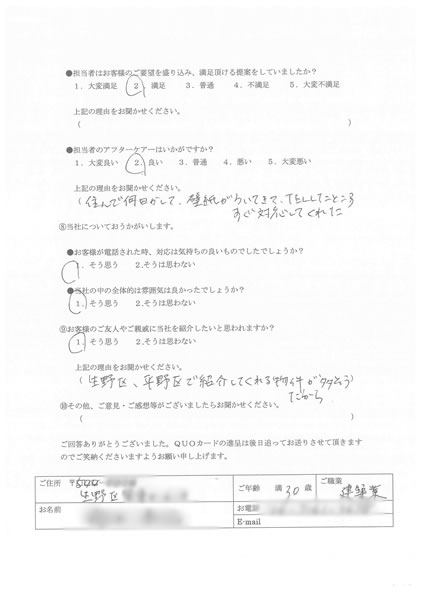 ●担当者はお客様のご要望を盛り込み、満足頂ける提案をしていましたか？
1．大変満足　2．満足　3．普通　4．不満足　5．大変不満足
上記の理由をお聞かせください。
(　)
●担当者のアフターケアーはいかがですか？
1．大変良い　2．良い　3．普通　4．悪い　5．大変悪い
上記の理由をお聞かせください。
(住んで何日かして、壁紙がういてきて、TELしたところ
すぐ対応してくれた
⑧当社についておうかがいします。
●お客様が電話された時、対応は気持ちの良いものでしたでしょうか？
1．そう思う　2.そうは思わない
●当社の中の全体的は雰囲気は良かったでしょうか？
1．そう思う　2.そうは思わない
⑨お客様のご友人やご親戚に当社を紹介したいと思われますか？
1．そう思う　2.そうは思わない
上記の理由をお聞かせください。
(生野区、平野区で紹介してくれる物件が多そう)
だから
⑩その他、ご意見・ご感想等がございましたらお聞かせください。
(　)
ご回答ありがとうございました。QUOカードの進呈は後日追ってお送りさせて頂きます
のでご笑納くださいますようお願い申し上げます。
ご住所　〒544-
生野区
ご年齢　満 30 歳
ご職業
建築業
お名前
お電話
E-mail